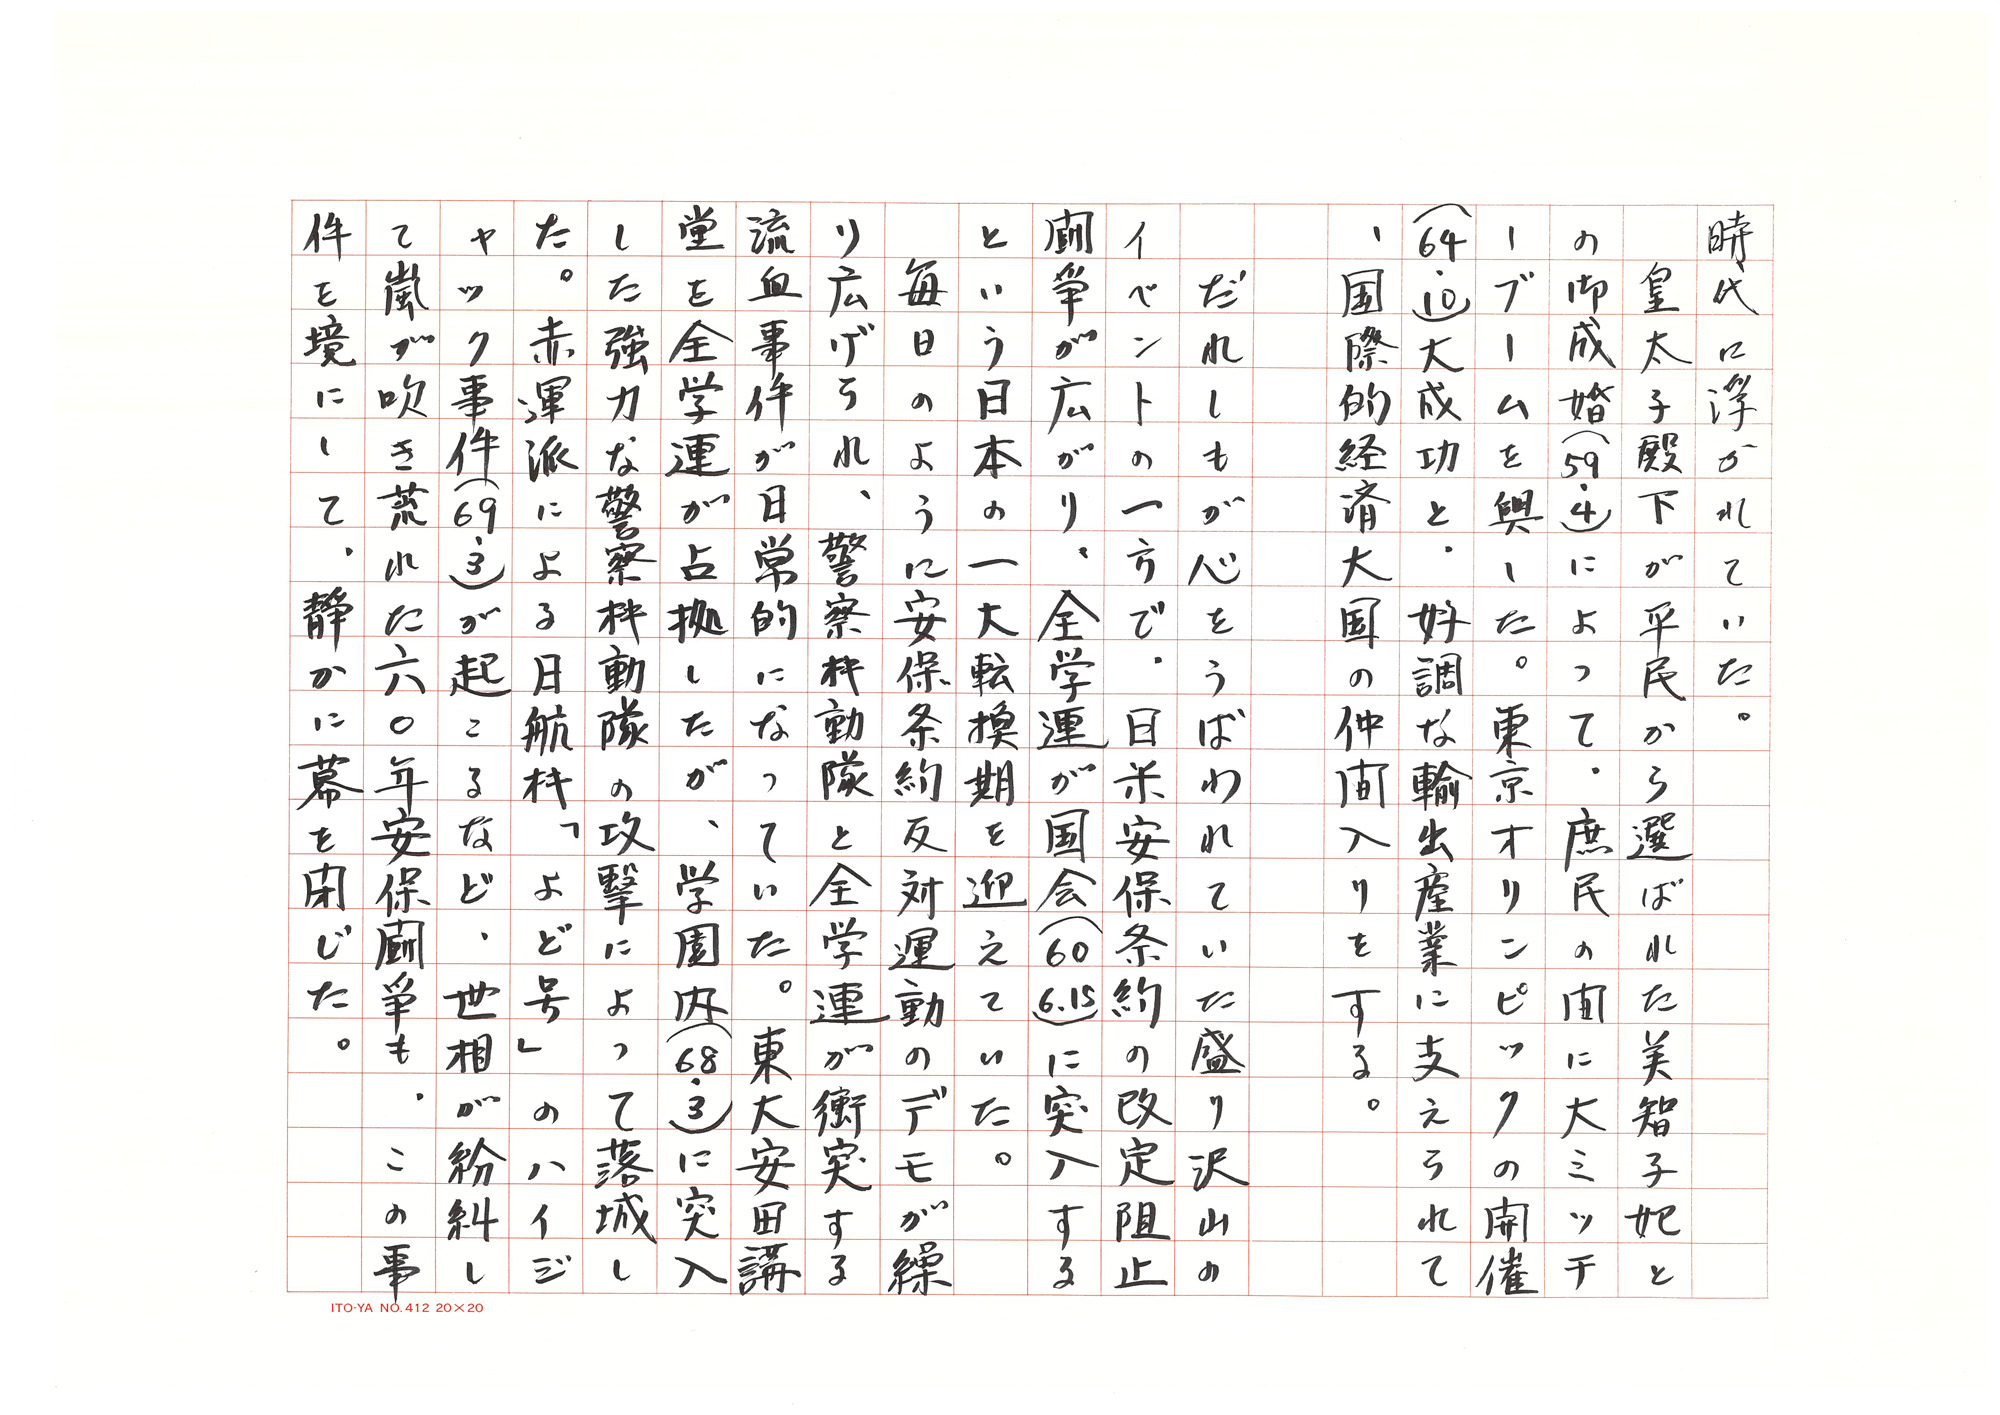 時代に浮かれていた。
皇太子殿下が平民から選ばれた美智子妃と
の御成婚(59・4)によって、庶民の間に大ミッチ
ーブームを興した。東京オリンピックの開催
(64・10)大成功と、好調な輸出産業に支えられて
、国際的経済大国の仲間入りをする。
だれしもが心をうばわれていた盛り沢山の
イベントの一方で、日米安保条約の改定阻止
闘争が広がり、全学連が国会(60 6.15)に突入する
という日本の一大転換期を迎えていた。
毎日のように安保条約反対運動のデモが繰
り広げられ、警察機動隊と全学連が衝突する
流血事件が日常的になっていた。東大安田講
堂を全学連が占拠したが、学園内(68・3)に突入
した強力な警察機動隊の攻撃によって落城し
た。赤軍派による日航機「よど号」のハイジ
ャック事件(69・3)が起こるなど、世相が紛糾し
て嵐が吹き荒れた六〇年安保闘争も、この事
件を境にして、静かに幕を閉じた。
ITO-YA NO.412 20×20